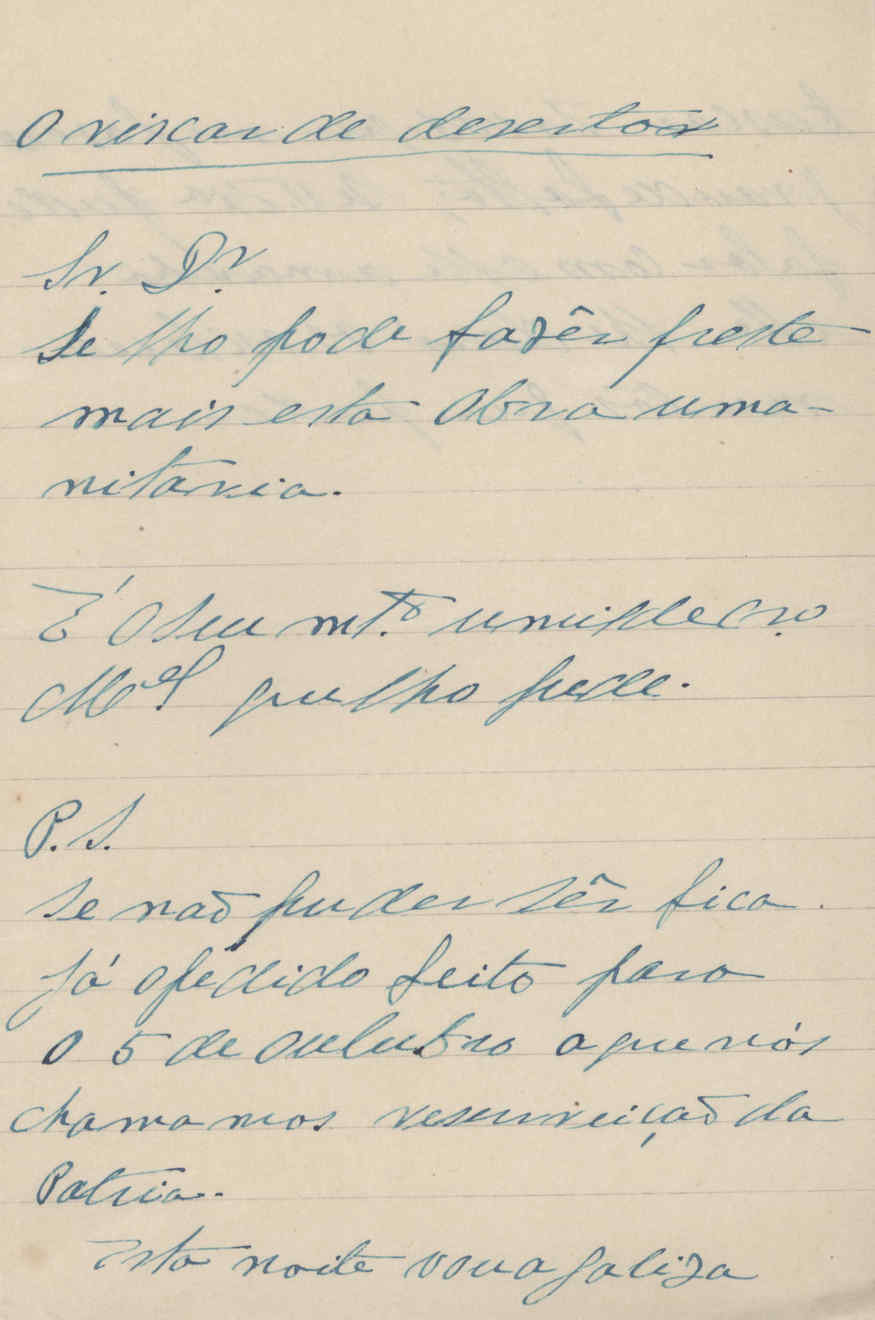 O riscar de desertor
Sr. Dr.
Se lho pode fazêr preste
mais esta Obra uma-
nitaria.
É O seu mt.º umilde Cr.º
M.el que lho pede.
P. S.
Se naõ puder sêr fica
já o pedido feito para
o 5 de outubro a que nós
chamamos resurreiçaõ da
Patria.
Esta noite vou a galiza